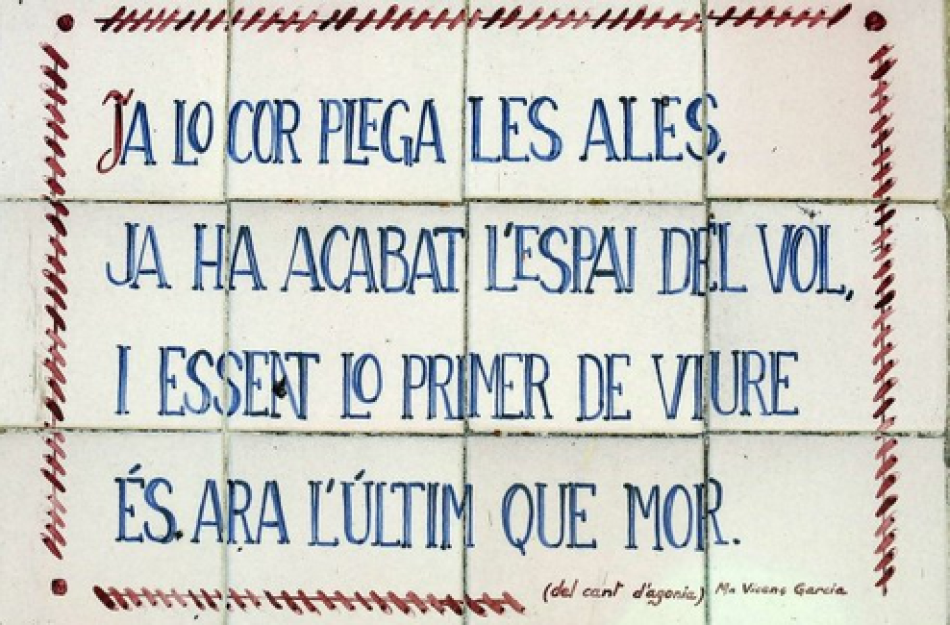 JA LO COR PLEGA LES ALES,
JA HA ACABAT L'ESPAI DEL VOL,
I ESSENT LO PRIMER DE VIURE
ÉS. ARA L'ÚLTIM QUE MOR.
(del cant d'agonia) Mn Vicenç Garcia